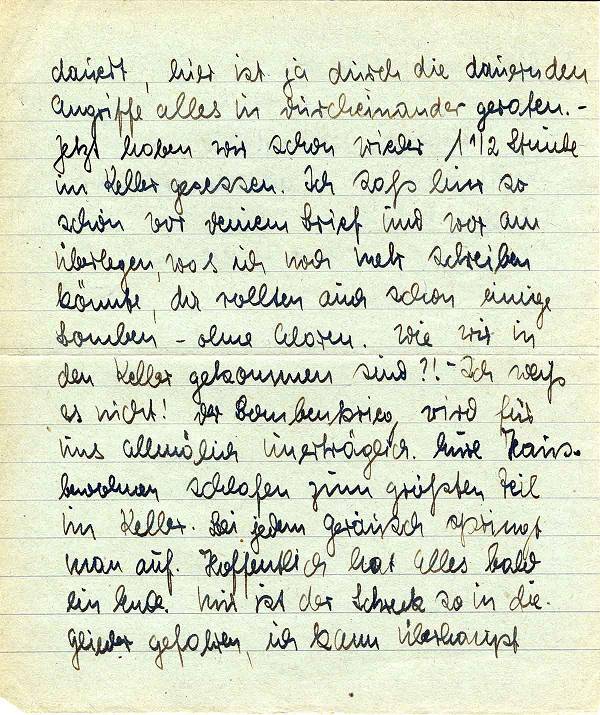 dauert, hier ist ja durch die dauernden
Angriffe alles in durcheinander geraten. -
Jetzt haben wir schon wieder 1 1/2 Stunde
im Keller gesessen. Ich saß hier so
schön vor deinem Brief und war am
überlegen, was ich noch mehr schreiben
könnte, da rollten auch schon einige
Bomben - ohne Alarm. Wie wir in
den Keller gekommen sind?! - Ich weiß
es nicht! Der Bombenkrieg wird für
uns allmälich unerträglich. Eure Haus-
bewohner schlafen zum größten Teil
im Keller. Bei jedem Geräusch springt
man auf. Hoffentlich hat alles bald
ein Ende. Mir ist der Schreck so in die
Glieder gefahren, ich kann überhaupt